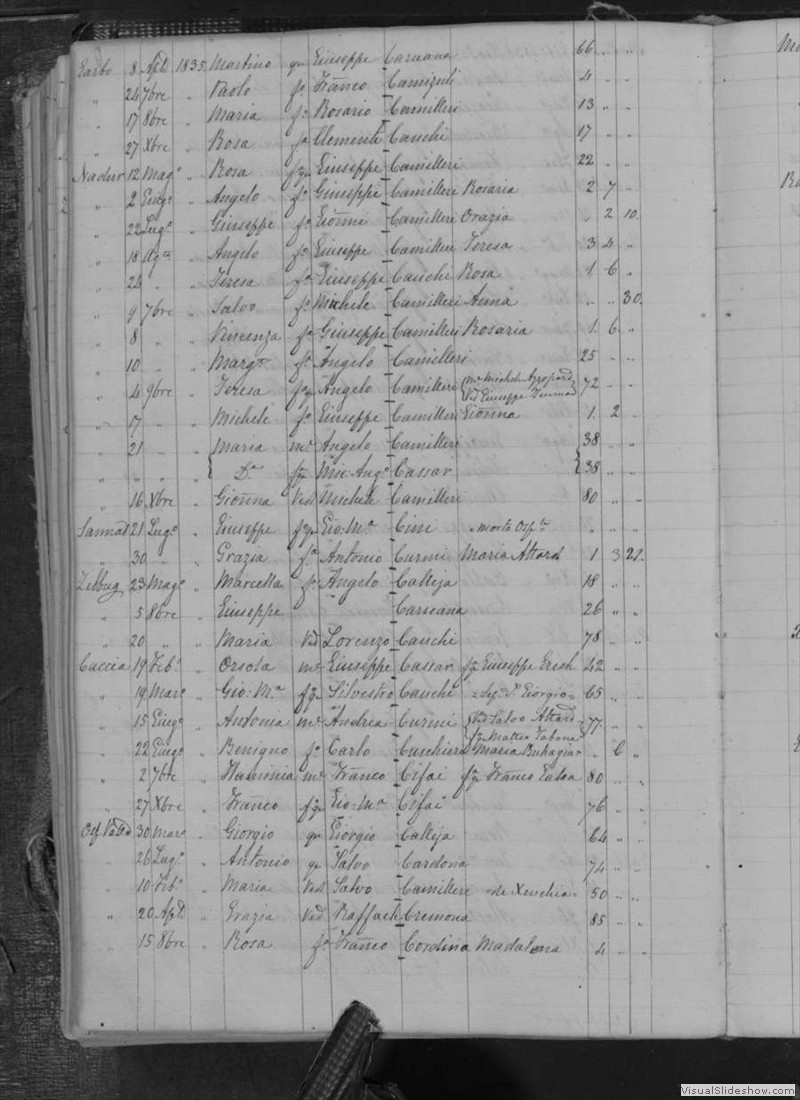 Garbo 8 Aple 1835 Martino qu Giuseppe Caruana 66 " "
" 24 7bre " Paolo fo Franco Camizuli 4 " "
" 17 8bre " Maria fa Rosario Camilleri 13 " "
" 27 Xbre " Rosa fa Clemente Cauchi 17 " "
Nadur 12 Mago " Rosa Giuseppe Camilleri 22 " "
" 2 Giugo " Angelo fo Giuseppe Camilleri Rosaria 2 7 "
" 22 Lugo " Giuseppe fo Gionni Camilleri Orazia " 2 10
" 18 Agto " Angelo fo Giuseppe Camilleri Teresa 3 4 "
" 24 " " Teresa fa Giuseppe Cauchi Rosa 1 6 "
" 9 7bre " Salvo fo Michele Camilleri Anna " " 30
" 8 " " Vincenza fa Giuseppe Camilleri Rosaria 1 6 "
" 10 " " Marga fa Angelo Camilleri 25 " "
" 4 9bre " Teresa Angelo Camilleri 72 " "
" 17 " " Michele fo Giuseppe Camilleri Gionna 1 2 "
" 21 " " Maria me Angelo Camilleri 38 " "
" " " " Da Ango Cassar 38 " "
" 16 Xbre " Gionna Vid Michele Camilleri 80 " "
Sannat 21 Lugo " Giuseppe Gio: Ma Cini morto " " "
" 30 " " Grazia fa Antonio Curmi Maria Attard 1 3 21
Zebbug 23 Mago " Marcella fa Angelo Calleja 18 " "
" 5 8bre " Giuseppe Caruana 26 " "
" 20 " " Maria Vid Lorenzo Cauchi 78 " "
Caccia 19 Febo " Orsola me Giuseppe Cassar Giuseppe Grech 42 " "
" 19 Marzo " Gio: Ma Silvestro Cauchi Giorgio 65 " "
" 15 Giugo " Antonia me Andrea Curmi Vid Salvo Attard 77 " "
Matteo Tabone
" 22 Giugo " Benigno fo Carlo Cuschieri Maria Buhagiar " 6 "
" 2 7bre " Flaminia me Franco Cifai Franco 80 " "
" 27 Xbre " Franco Gio: Ma Cifai 76 " "
30 Marzo " Giorgio qu Giorgio Calleja 64 " "
26 Lugo " Antonio qu Salvo Cardona 74 " "
" 10 Febo " Maria Vid Salvo Camilleri de Xeuchia 50 " "
" 20 Aple " Grazia Vid Raffaele Cremona 85 " "
" 15 8bre " Rosa fa Franco Cordina Madalena 4 " "
VisualSlideshow.com